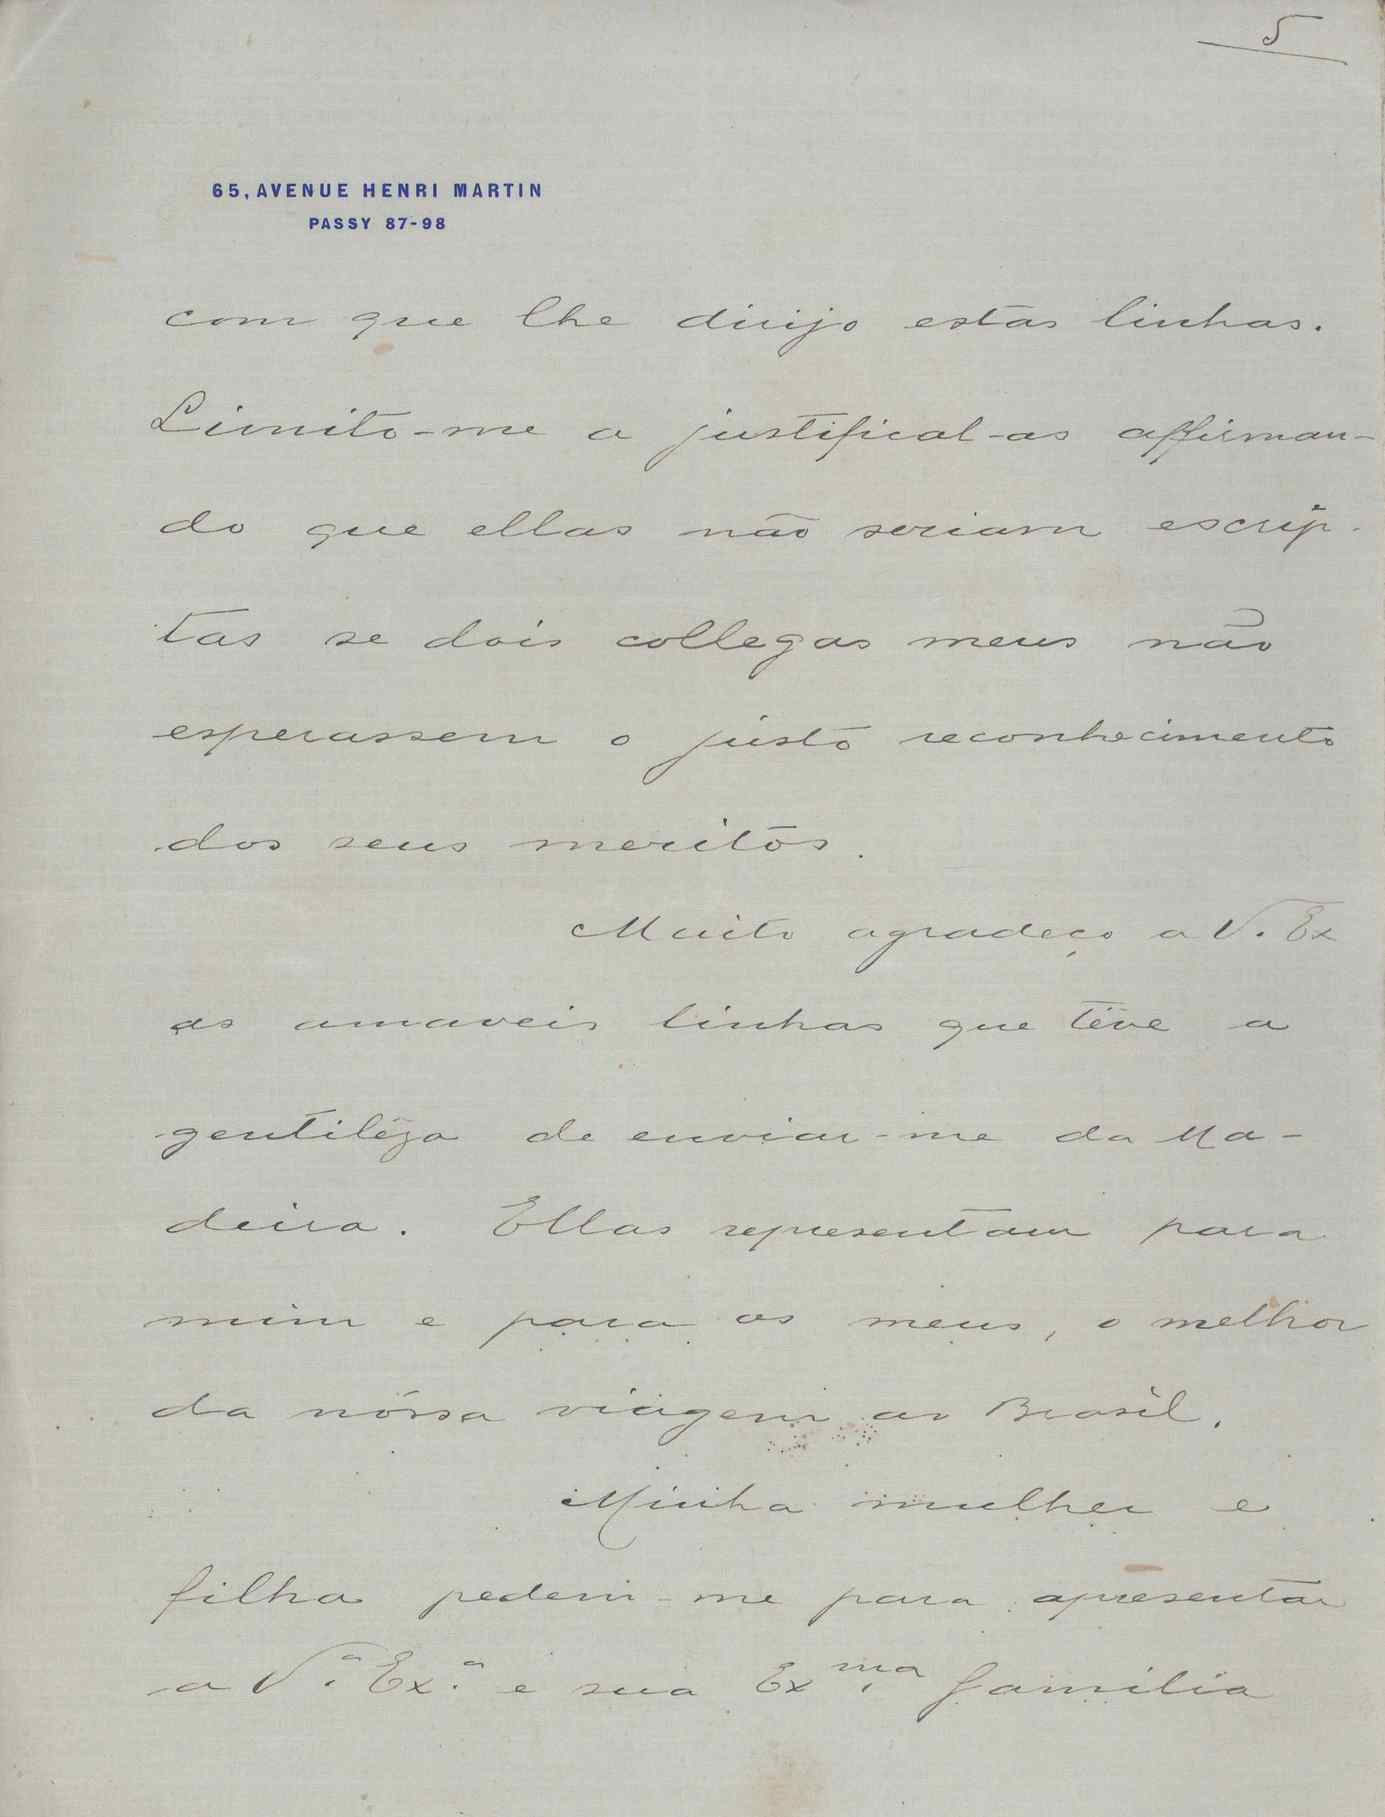 5
65, AVENUE HENRI MARTIN
PASSY 87-98
com que lhe dirijo estas linhas.
Limito-me a justifical-as affirman-
do que ellas não seriam escrip-
tas se dois collegas meus não
esperassem o justo reconhecimento
dos seus meritos.
Muito agradeço a V. Ex
as amaveis linhas que têve a
gentilêza de enviar-me da Ma-
deira. Ellas representam para
mim e para os meus, o melhor
da nóssa viagem ao Brasil.
Minha mulher e
filha pedem-me para apresentar
a V.ª Ex.ª e sua Ex.ma familia